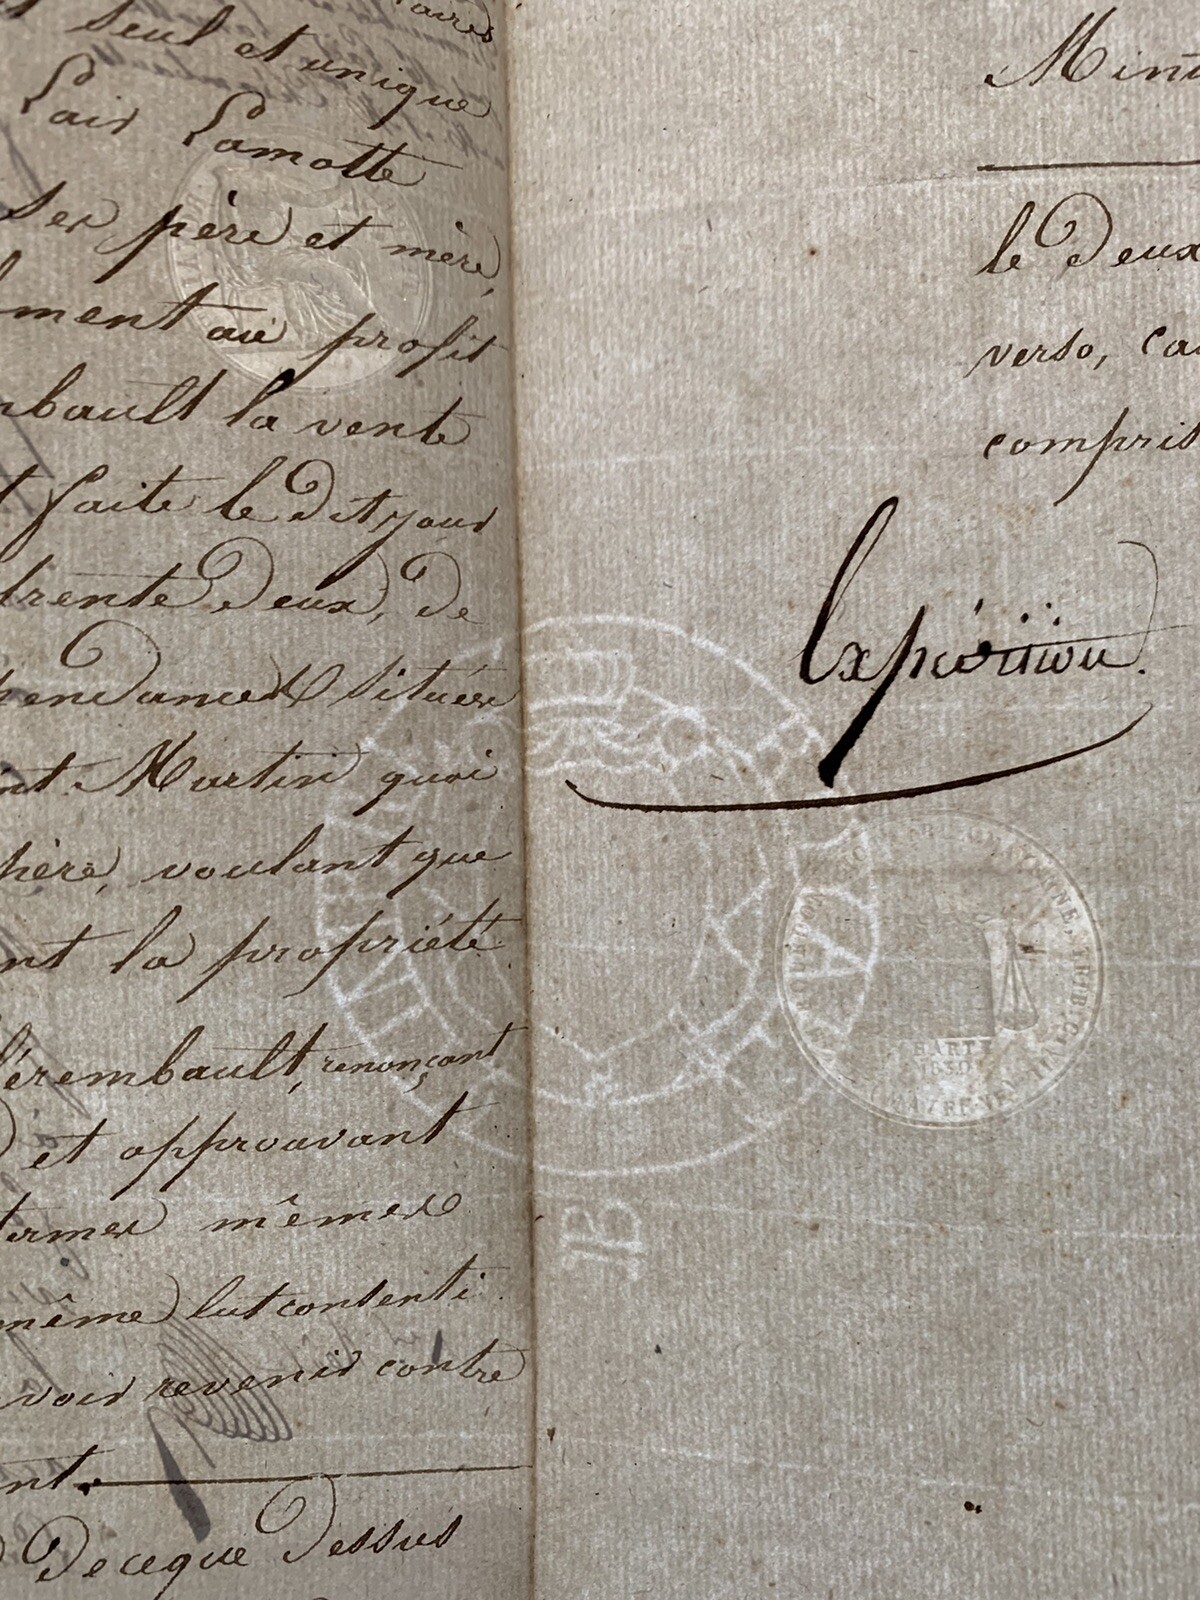 seul et unique
Lair Lamotte
ses père et mère,
ment au profit
mbault la vente
t faite le dit jour
trente deux, de
pendances situées
nt Martin quoi
père, voulant que
nt la propriété
Pérembault, renonçant
et approuvant
termes mêmes
même lut consenti
voir revenir contre
nt.
De ceque Dessus
Min
le Deux
verso, ca
compris
Expédition.